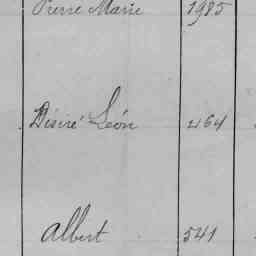 Pierre Marie 1985
Désiré Léon 464
Albert 541